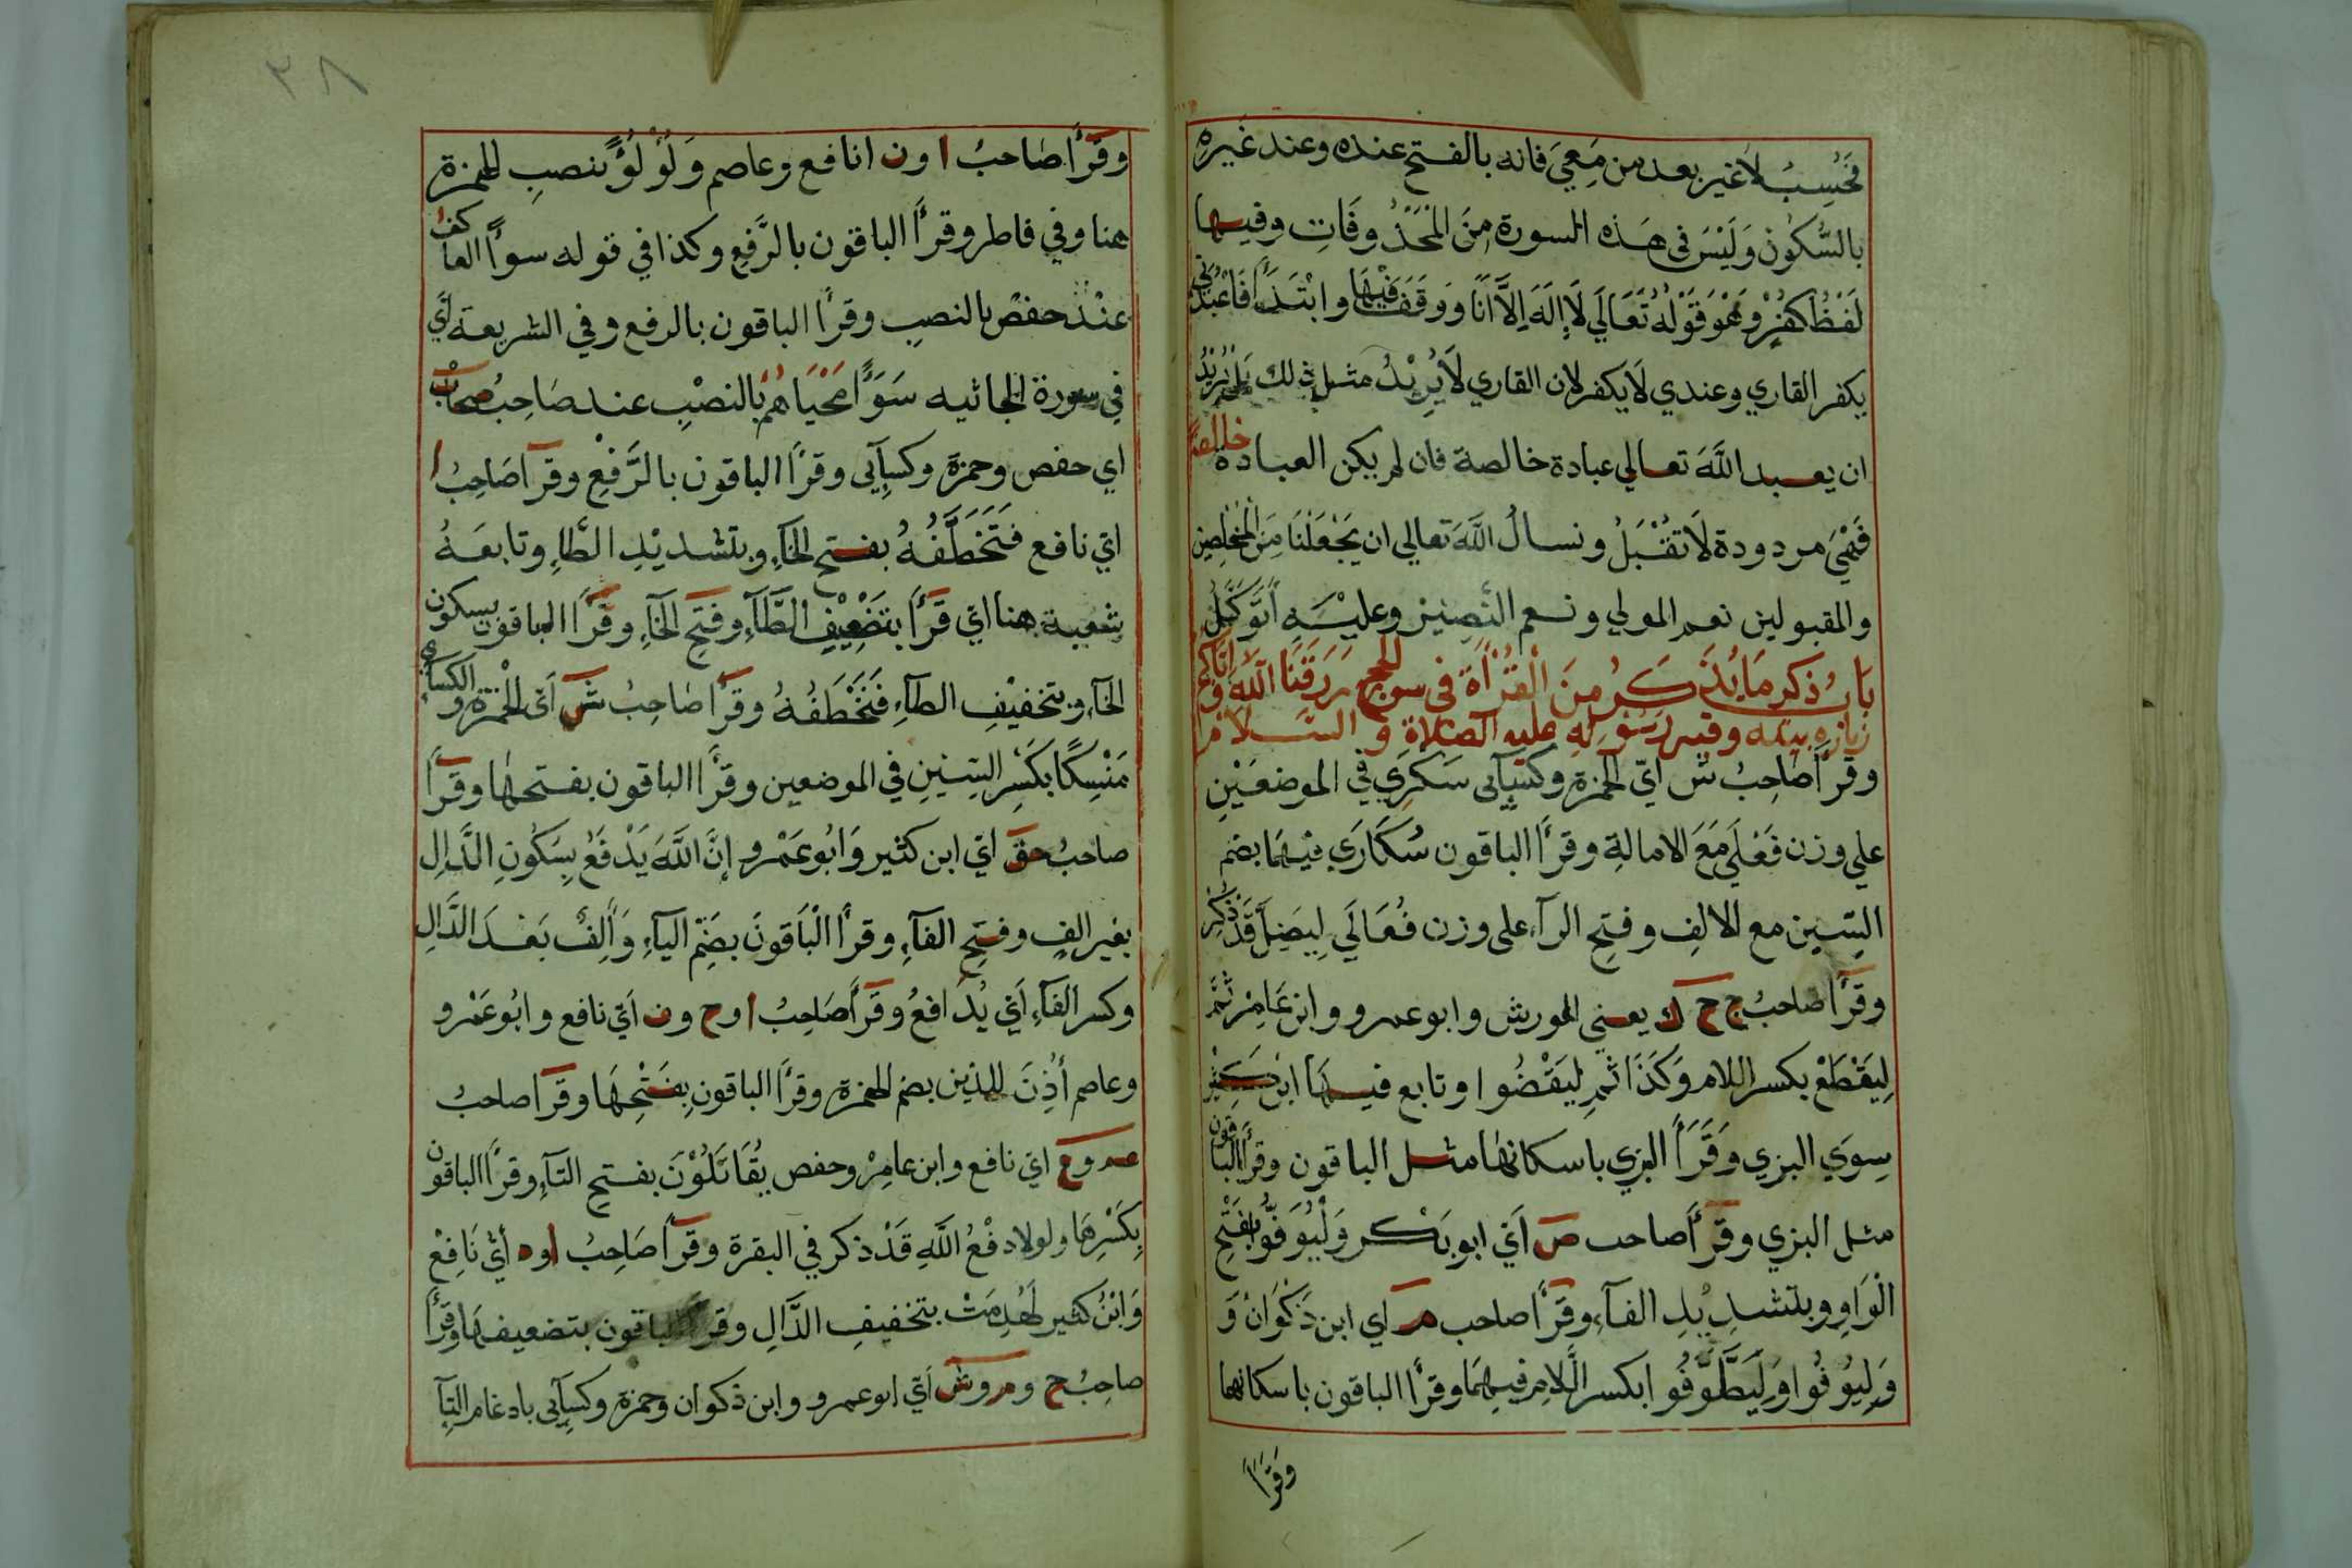 فحسب لاغير بعد من معي فانه بالفتح عنده وعند غيره
بالسكون وليس في هذه السورة من المحذوفات وفيها
لفظ كفر وهو قوله تعالي لا اله الا انا ووقف فيها وابتدأ فاعبدني
يكفر القاري وعندي لا يكفر لان القاري لا يريد مثل ذلك بل يريد
ان يعبد الله تعالي عبادة خالصة فان لم يكن العبادة خالصة
فهي مردودة لا تقبل ونسال الله تعالي ان يجعلنا من المخلصين
والمقبولين نعم المولي ونعم النصير وعليه اتوكل
باب ذكر ما يذكر من القراة في سورة الحج رزقنا الله واياكم
زيارة بيته وقبر رسوله عليه الصلاة و السلام
وقرأ صاحب ش اي الحمزة وكسآئي سكري في الموضعين
علي وزن فعلي مع الامالة وقرأ الباقون سكاري فيهما بضم
السين مع الالف وفتح الرآء علي وزن فعالي ليضل قد ذكر
وقرأ صاحب ج ح ك يعني المورش وابو عمرو وابن عامر ثم
ليقطع بكسر اللام وكذا ثم ليقضوا وتابع فيها ابن كثير
سوي البزي وقرأ البزي باسكانها مثل الباقون وقرأ الباقون
مثل البزي وقرأ صاحب ص اي ابو بكر وليوفوا بفتح
الواو وبتشديد الفآء وقرأ صاحب م اي ابن ذكوان و
وليوفوا وليطوفوا بكسر اللام فيهما وقرأ الباقون باسكانها
وقرأ
٣٨
وقرأ صاحب ا ون انافع وعاصم ولؤلؤا بنصب للهمزة
هنا وفي فاطر وقرأ الباقون بالرفع وكذا في قوله سوآ العاكف
عند حفص بالنصب وقرأ الباقون بالرفع وفي الشريعة اي
في سورة الجاثيه سوآ محياهم بالنصب عند صاحب صحاب
اي حفص وحمزة وكسآئي وقرأ الباقون بالرفع وقرأ صاحب ا
اي نافع فتخطفه بفتح الخآء وبتشديد الطآء وتابعه
شعبة هنا اي قرأ بتضعيف الطآء وفتح الخآء وقرأ الباقون بسكون
الخآء وبتخفيف الطآء فتخطفه وقرأ صاحب ش اي الحمزة والكسآئي
منسكا بكسر السين في الموضعين وقرأ الباقون بفتحها وقرأ
صاحب حق اي ابن كثير وابو عمرو ان الله يدفع بسكون الدال
بغير الف وفتح الفآء وقرأ الباقون بضم اليآء والف بعد الدال
وكسر الفآء اي يدافع وقرأ صاحب ا وح ون اي نافع وابو عمرو
وعاصم أذن للذين بضم الهمزة وقرأ الباقون بفتحها وقرأ صاحب
عم وع اي نافع وابن عامر وحفص يقاتلون بفتح التآء وقرأ الباقون
بكسرها ولولا دفع الله قد ذكر في البقرة وقرأ صاحب ا وه أي نافع
وابن كثير لهدمت بتخفيف الدال وقرأ الباقون بتضعيفها وقرأ
صاحب ح وم وش اي ابو عمرو وابن ذكوان وحمزة وكسآئي بادغام التآ